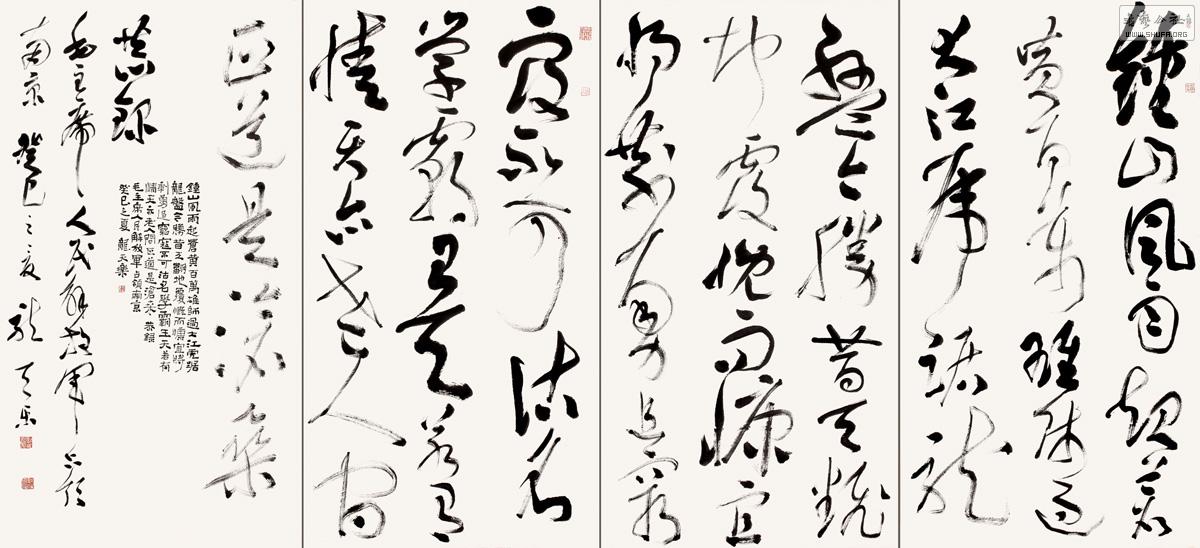 鍾山風雨起蒼
黃百萬雄師過
大江虎踞龍
盤今勝昔天翻
地覆慨而慷宜
將剩勇追窮
寇不可沽名
學霸王天若有
情天亦老人間
正道是滄桑
恭錄
毛主席人民解放軍占領
南京 癸巳之夏 龍天樂
鍾山風雨起蒼黃百萬雄師過大江虎踞
龍盤今勝昔天翻地覆慨而慷宜將
剩勇追窮寇不可沽名學霸王天若有
情天亦老人間正道是滄桑 恭錄
毛主席人民解放軍占領南京
癸巳之夏 龍天樂
WWW.SHUFA.ORG